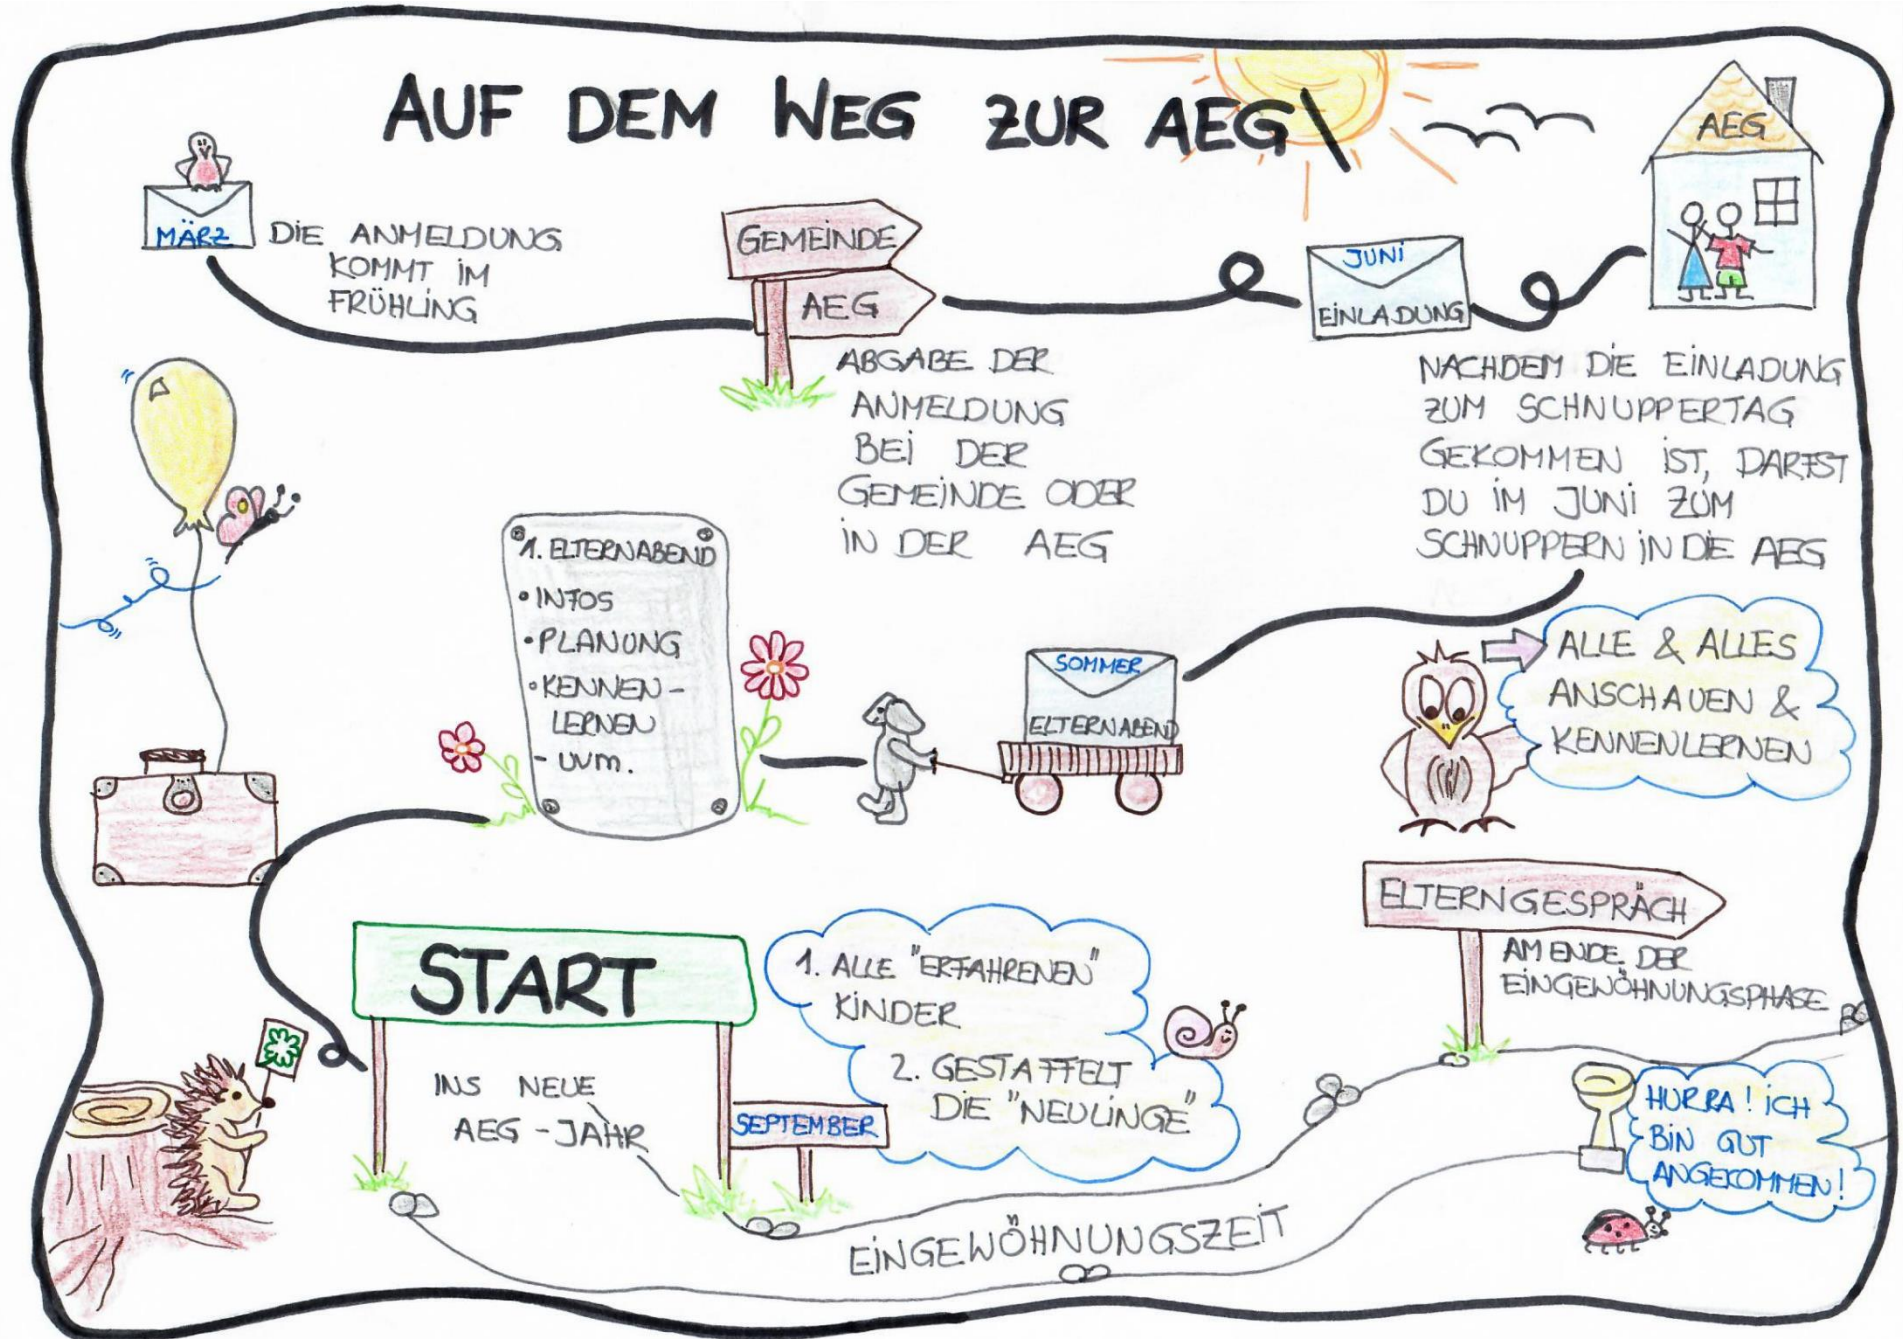 AUF DEM WEG ZUR AEG
MÄRZ
DIE ANMELDUNG
KOMMT IM
FRÜHLING
GEMEINDE
AEG
ABGABE DER
ANMELDUNG
BEI DER
GEMEINDE ODER
IN DER AEG
JUNI
EINLADUNG
AEG
NACHDEM DIE EINLADUNG
ZUM SCHNUPPERTAG
GEKOMMEN IST, DARFST
DU IM JUNI ZUM
SCHNUPPERN IN DIE AEG
ALLE & ALLES
ANSCHAUEN &
KENNENLERNEN
SOMMER
ELTERNABEND
1. ELTERNABEND
• INFOS
• PLANUNG
• KENNEN-
LERNEN
- UVM.
START
INS NEUE
AEG-JAHR
SEPTEMBER
1. ALLE "ERFAHRENEN"
KINDER
2. GESTAFFELT
DIE "NEULINGE"
EINGEWÖHNUNGSZEIT
ELTERNGESPRÄCH
AM ENDE DER
EINGEWÖHNUNGSPHASE
HURRA! ICH
BIN GUT
ANGEKOMMEN!